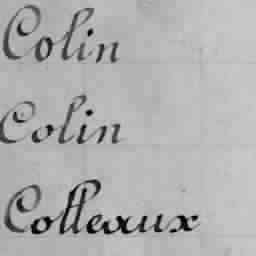 Colin
Colin
Colleaux